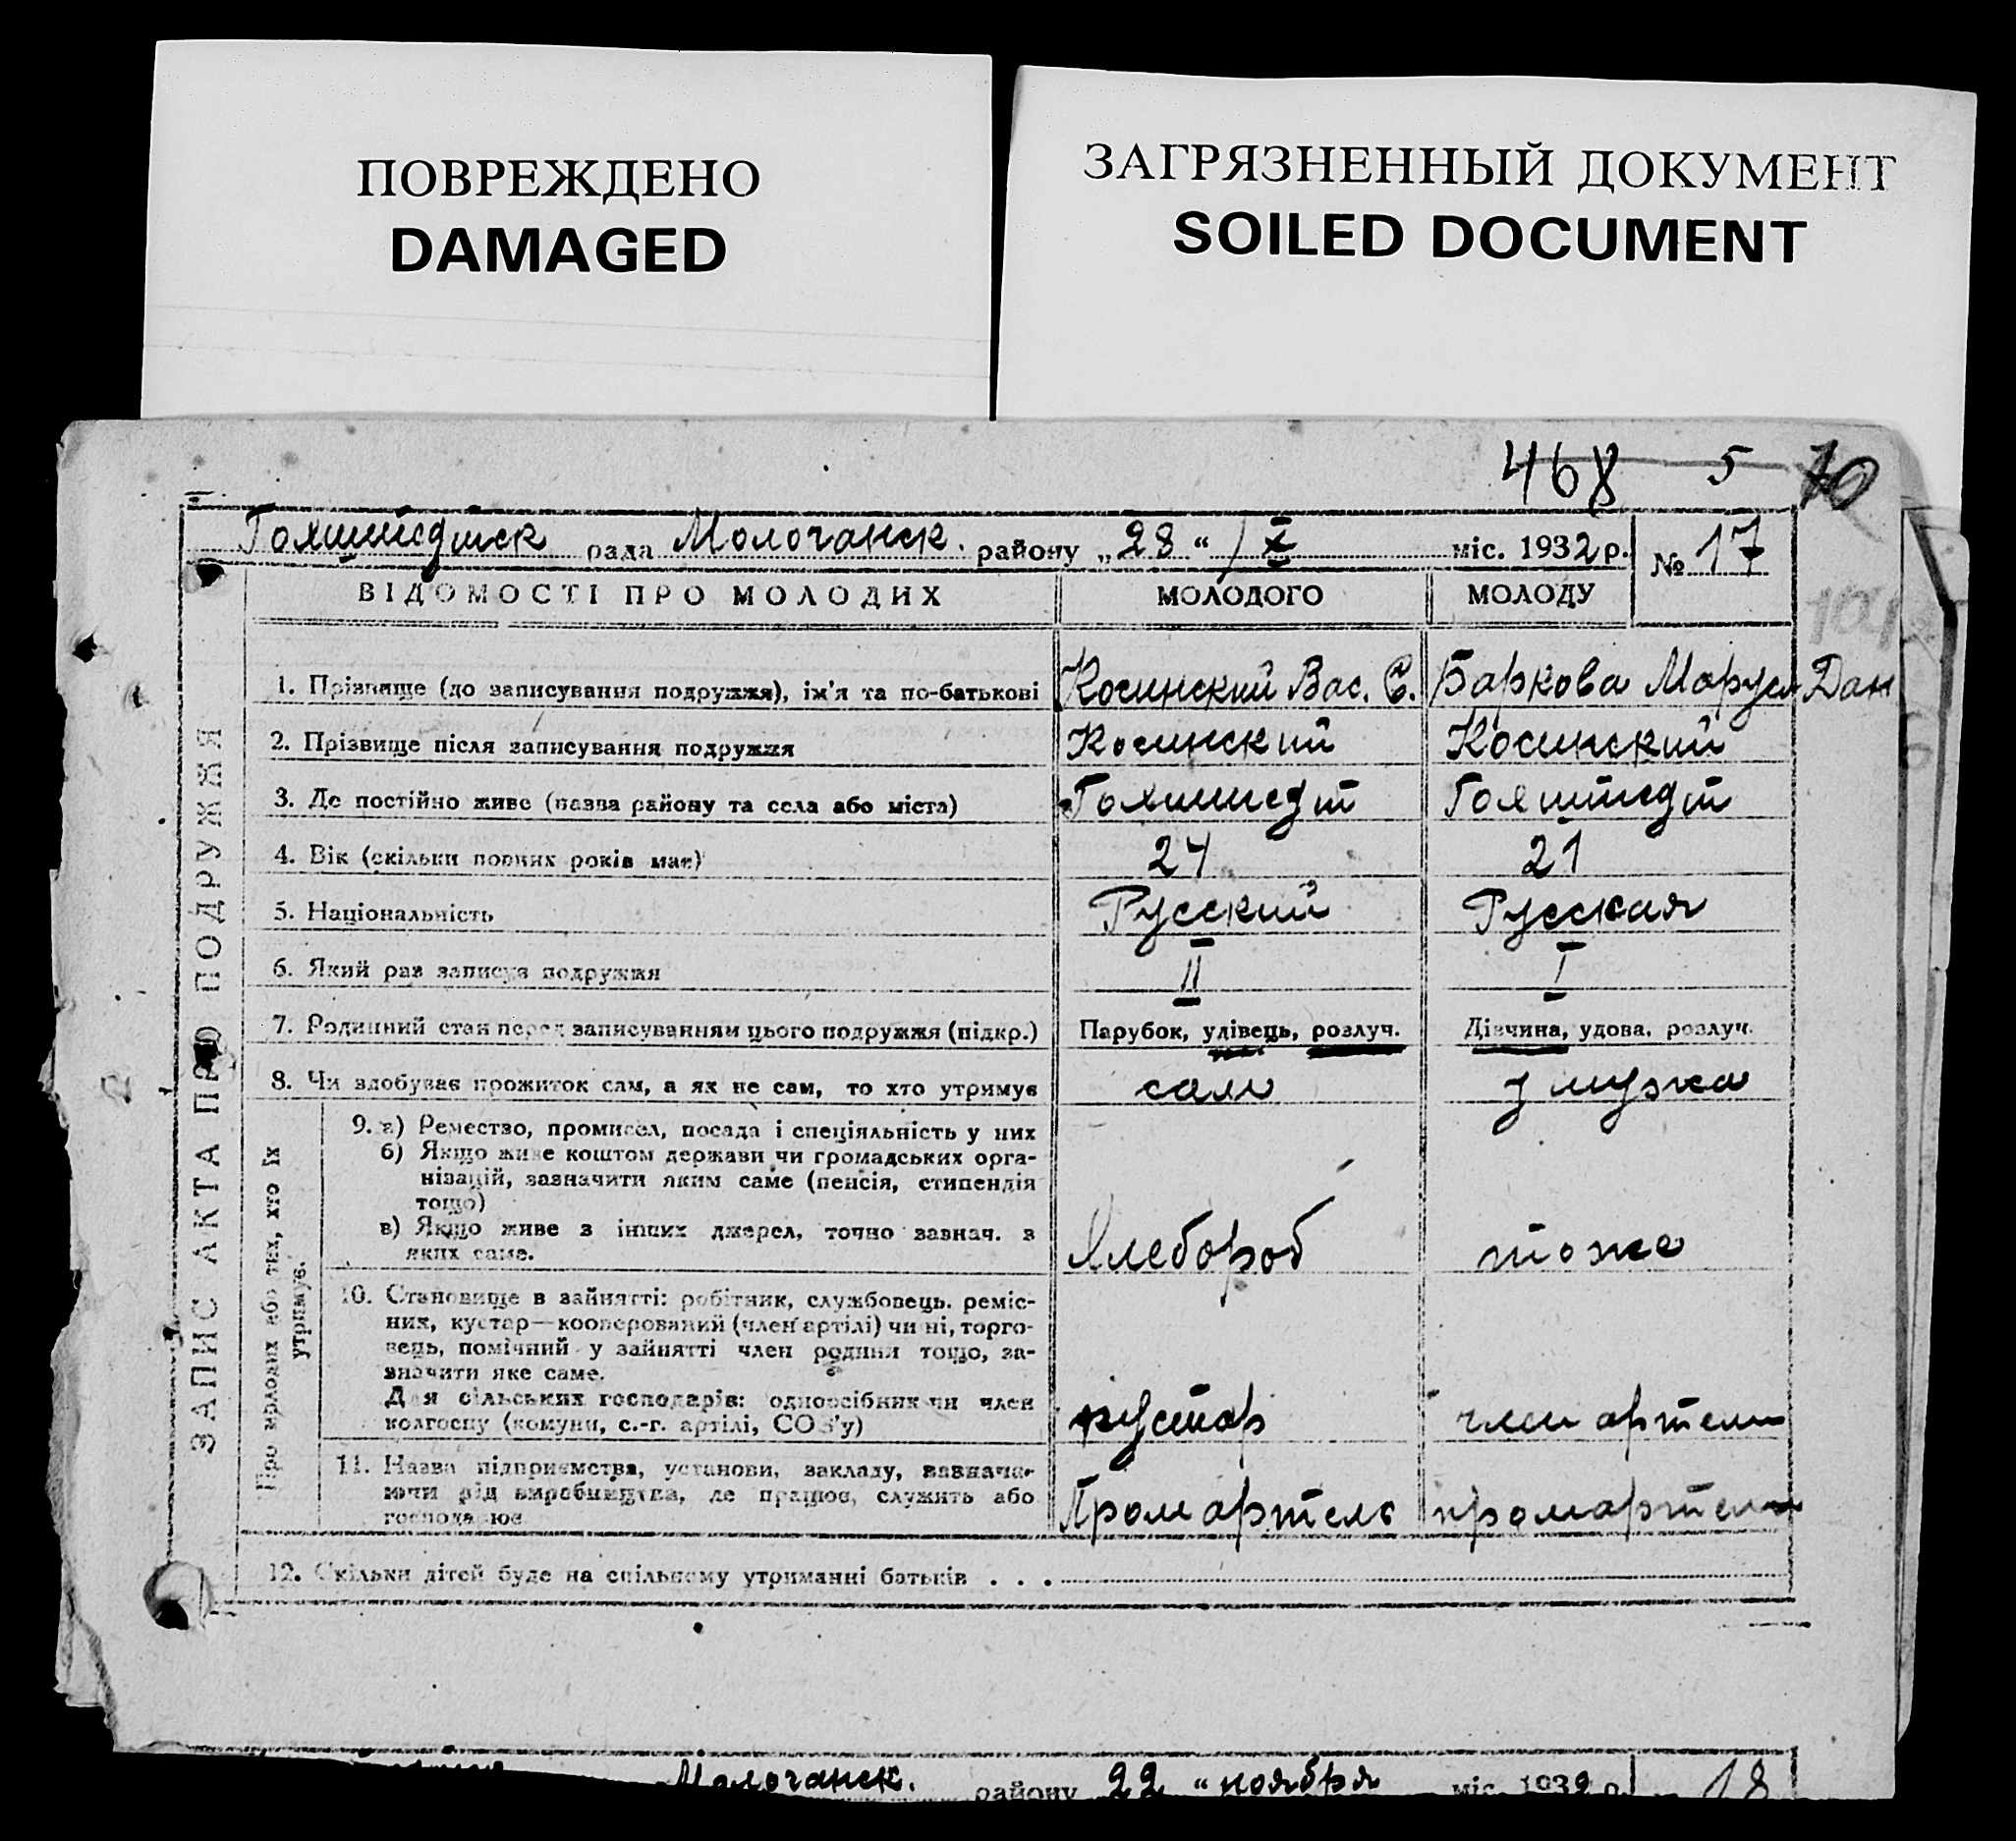 ПОВРЕЖДЕНО
DAMAGED
ЗАГРЯЗНЕННЫЙ ДОКУМЕНТ
SOILED DOCUMENT
468 5 10
Гохштедтск рада Молочанск. району „28“ / X міс. 1932 р. № 17
ВІДОМОСТІ ПРО МОЛОДИХ МОЛОДОГО МОЛОДУ
ЗАПИС АКТА ПРО ПОДРУЖЖЯ
1. Прізвище (до записування подружжя), ім'я та по-батькові Косинский Вас. С. Баркова Маруся Дан
2. Прізвище після записування подружжя Косинский Косинский
3. Де постійно живе (назва району та села або міста) Гохштедт Гохштедт
4. Вік (скільки повних років має) 24 21
5. Національність Русский Русская
6. Який раз записує подружжя II I
7. Родинний стан перед записуванням цього подружжя (підкр.) Парубок, удівець, розлуч. Дівчина, удова, розлуч.
8. Чи здобуває прожиток сам, а як не сам, то хто утримує сам у мужа
Про молодих або тих, хто їх утримує.
9. а) Ремество, промисел, посада і спеціяльність у них
б) Якщо живе коштом держави чи громадських орга-
нізацій, зазначити яким саме (пенсія, стипендія
тощо)
в) Якщо живе з інших джерел, точно зазнач. з
яких саме. Хлебороб тоже
10. Становище в зайнятті: робітник, службовець, реміс-
ник, кустар—кооперований (член артілі) чи ні, торго-
вець, помічний у зайнятті член родини тощо, за-
значити яке саме.
Для сільських господарів: одноосібник чи член
колгоспу (комуни, с.-г. артілі, СОЗ'у) кустар член артели
11. Назва підприємства, установи, закладу, зазнача-
ючи рід виробництва, де працює, служить або
господарює Промартель промартели
12. Скільки дітей буде на спільному утриманні батьків . . .
Молочанск. району 22 “ ноября міс. 1932 р. 18